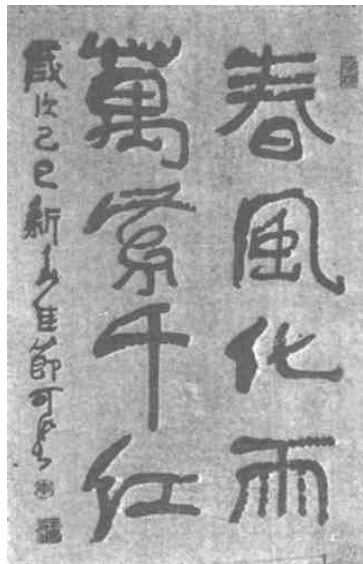 春風化雨
萬紫千紅
歲次己巳新春佳節可